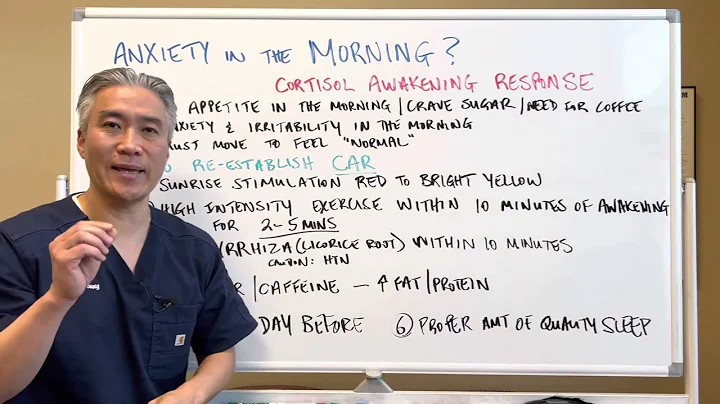 ANXIETY IN THE MORNING?
CORTISOL AWAKENING RESPONSE
APPETITE IN THE MORNING / CRAVE SUGAR / NEED FOR COFFEE
ANXIETY & IRRITABILITY IN THE MORNING
MUST MOVE TO FEEL "NORMAL"
RE-ESTABLISH CAR
SUNRISE STIMULATION RED TO BRIGHT YELLOW
HIGH INTENSITY EXERCISE WITHIN 10 MINUTES OF AWAKENING
FOR 2-5 MINS
(LICORICE ROOT) WITHIN 10 MINUTES
CAUTION: HTN
/ CAFFEINE - ↑ FAT / PROTEIN
DAY BEFORE ⑥ PROPER AMT OF QUALITY SLEEP